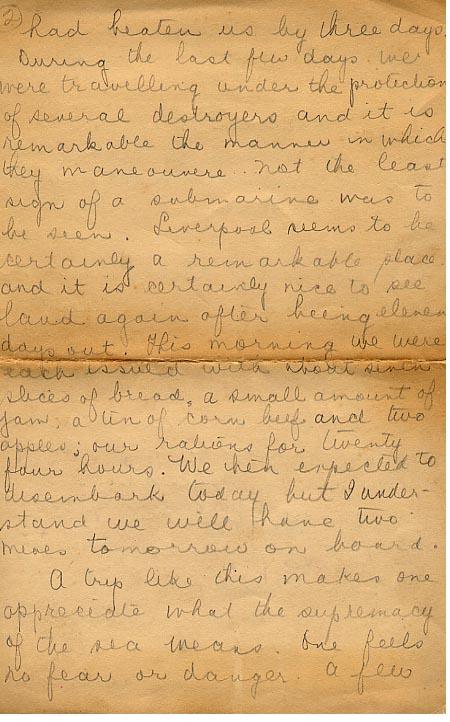 2) had beaten us by three days.
During the last few days we
were travelling under the protection
of several destroyers and it is
remarkable the manner in which
they maneouvere. Not the least
sign of a submarine was to
be seen. Liverpool seems to be
certainly a remarkable place
and it is certainly nice to see
land again after being eleven
days out. This morning we were
each issued with about seven
slices of bread, a small amount of
jam, a tin of corn beef and two
apples; our rations for twenty
four hours. We then expected to
disembark today but I under-
stand we will have two
meves tomorrow on board.
A trip like this makes one
appreciate what the supremacy
of the sea means. One feels
no fear or danger. A few